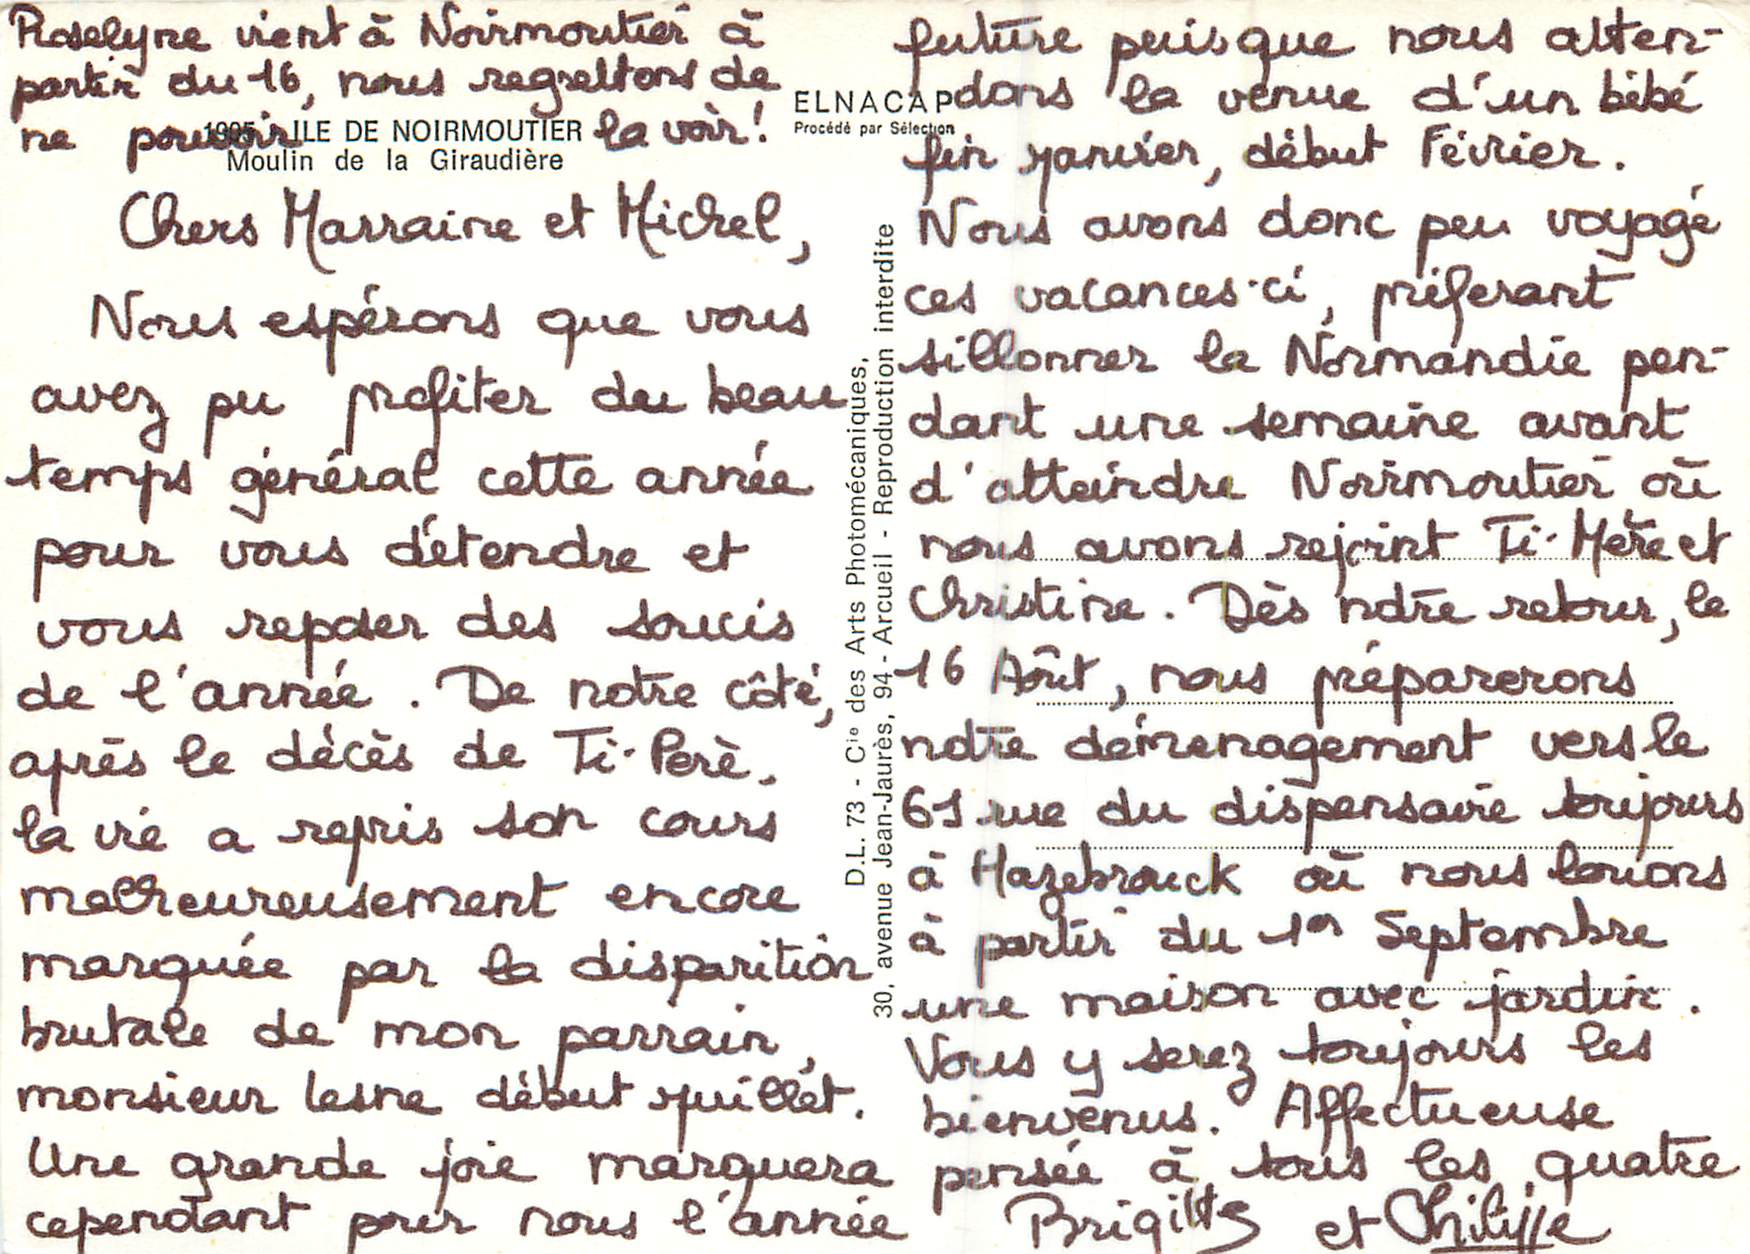 Roselyne vient à Noirmoutier à
partir du 16, nous regrettons de
ne pouvoir la voir!
1995 - ILE DE NOIRMOUTIER
Moulin de la Giraudière
ELNACAP
Procédé par Sélection
Chers Marraine et Michel,
Nous espérons que vous
avez pu profiter du beau
temps général cette année
pour vous détendre et
vous reposer des soucis
de l'année. De notre côté,
après le décès de Ti-Père,
la vie a repris son cours
malheureusement encore
marquée par la disparition
brutale de mon parrain,
monsieur Lesne début juillet.
Une grande joie marquera
cependant pour nous l'année
D.L. 73 - Cie des Arts Photomécaniques,
30, avenue Jean-Jaurès, 94 - Arcueil - Reproduction interdite
future puisque nous atten-
dons la venue d'un bébé
fin janvier, début Février.
Nous avons donc peu voyagé
ces vacances-ci, préférant
sillonner la Normandie pen-
dant une semaine avant
d'atteindre Noirmoutier où
nous avons rejoint Ti-Mère et
Christine. Dès notre retour, le
16 Août, nous préparerons
notre déménagement vers le
61 rue du dispensaire toujours
à Hazebrouck où nous louons
à partir du 1er Septembre
une maison avec jardin.
Vous y serez toujours les
bienvenus. Affectueuse
pensée à tous les quatre
Brigitte et Philippe